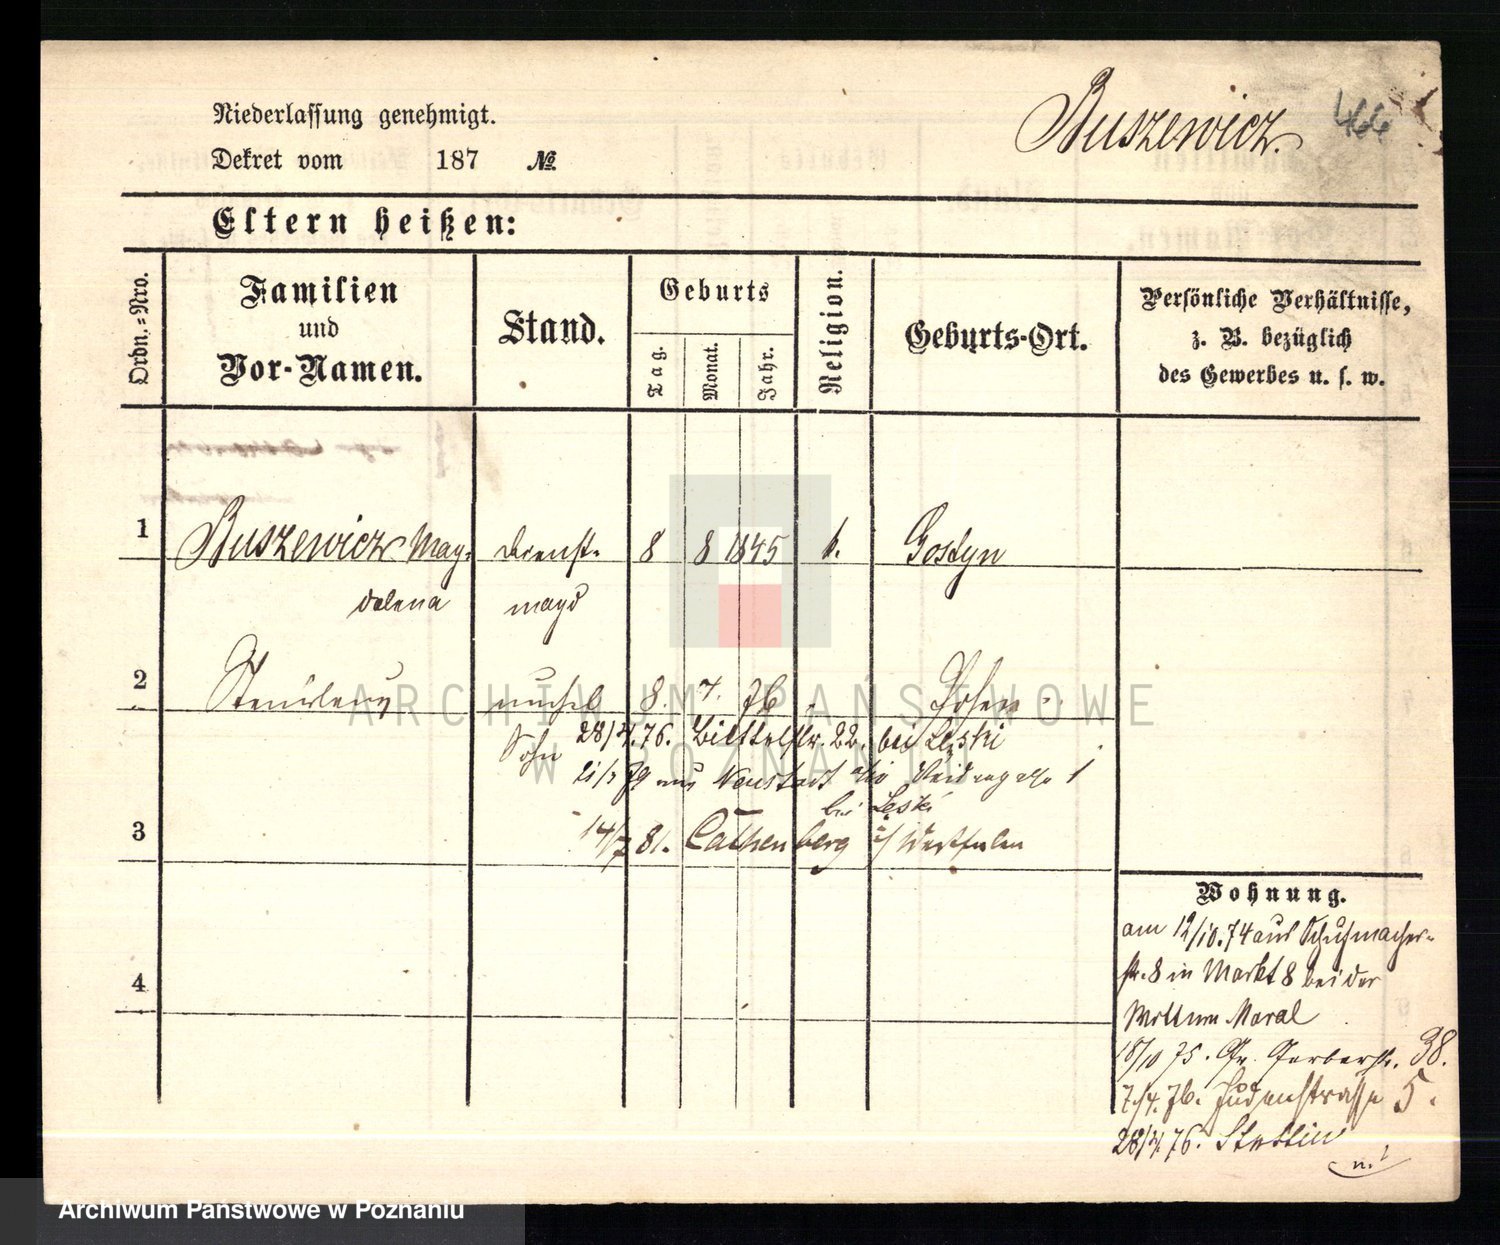 Niederlassung genehmigt.
Dekret vom 187 №
Buszewicz. 466
Eltern heißen:
Ordn.-Nro.
Familien
und
Vor-Namen.
Stand.
Geburts
Tag.
Monat.
Jahr.
Religion.
Geburts-Ort.
Persönliche Verhältnisse,
z. B. bezüglich
des Gewerbes u. s. w.
1 Buszewicz Mag- Dienst- 8 8 1845 k. Gostyn
dalena magd
2 Stanislaus unehel 8. 7. 76 Posen
Sohn 28/4.76. Büttelstr. 22. bei Leski
aus Neustadt
bei Leski
3 14/7 81. Cathenberg i/ Westfalen
4
Wohnung.
am 12/10.74 aus Schuhmacher-
str. 8 in Markt 8 bei der
Wittwe Maral
18/10 75. Gr. Gerberstr. 38.
7/4. 76. Judenstrasse 5.
28/4.76. Stettin
ARCHIWUM PAŃSTWOWE
W POZNANIU
Archiwum Państwowe w Poznaniu